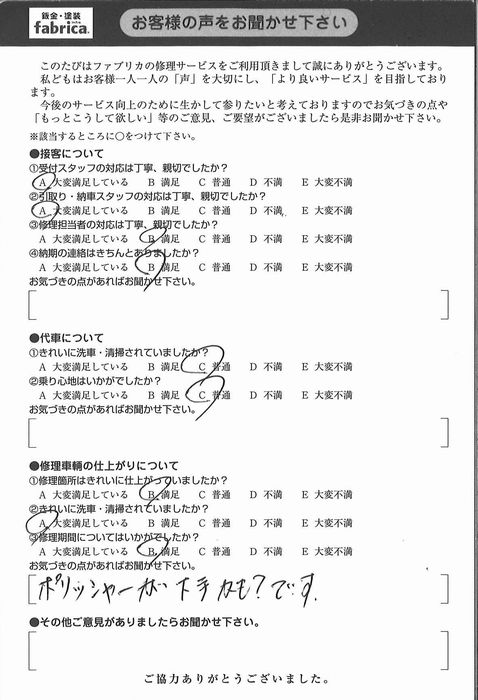 鈑金・塗装
fabrica.
お客様の声をお聞かせ下さい
このたびはファブリカの修理サービスをご利用頂きまして誠にありがとうございます。
私どもはお客様一人一人の「声」を大切にし、「より良いサービス」を目指しており
ます。
今後のサービス向上のために生かして参りたいと考えておりますのでお気づきの点や
「もっとこうして欲しい」等のご意見、ご要望がございましたら是非お聞かせ下さい。
※該当するところに○をつけて下さい。
●接客について
①受付スタッフの対応は丁寧、親切でしたか?
A 大変満足している B 満足 C 普通 D 不満 E 大変不満
②引取り・納車スタッフの対応は丁寧、親切でしたか?
A 大変満足している B 満足 C 普通 D 不満 E 大変不満
③修理担当者の対応は丁寧、親切でしたか?
A 大変満足している B 満足 C 普通 D 不満 E 大変不満
④納期の連絡はきちんとありましたか?
A 大変満足している B 満足 C 普通 D 不満 E 大変不満
お気づきの点があればお聞かせ下さい。
●代車について
①きれいに洗車・清掃されていましたか?
A 大変満足している B 満足 C 普通 D 不満 E 大変不満
②乗り心地はいかがでしたか?
A 大変満足している B 満足 C 普通 D 不満 E 大変不満
お気づきの点があればお聞かせ下さい。
●修理車輌の仕上がりについて
①修理箇所はきれいに仕上がっていましたか?
A 大変満足している B 満足 C 普通 D 不満 E 大変不満
②きれいに洗車・清掃されていましたか?
A 大変満足している B 満足 C 普通 D 不満 E 大変不満
③修理期間についてはいかがでしたか?
A 大変満足している B 満足 C 普通 D 不満 E 大変不満
お気づきの点があればお聞かせ下さい。
ポリッシャーが下手かも?です.
●その他ご意見がありましたらお聞かせ下さい。
ご協力ありがとうございました。